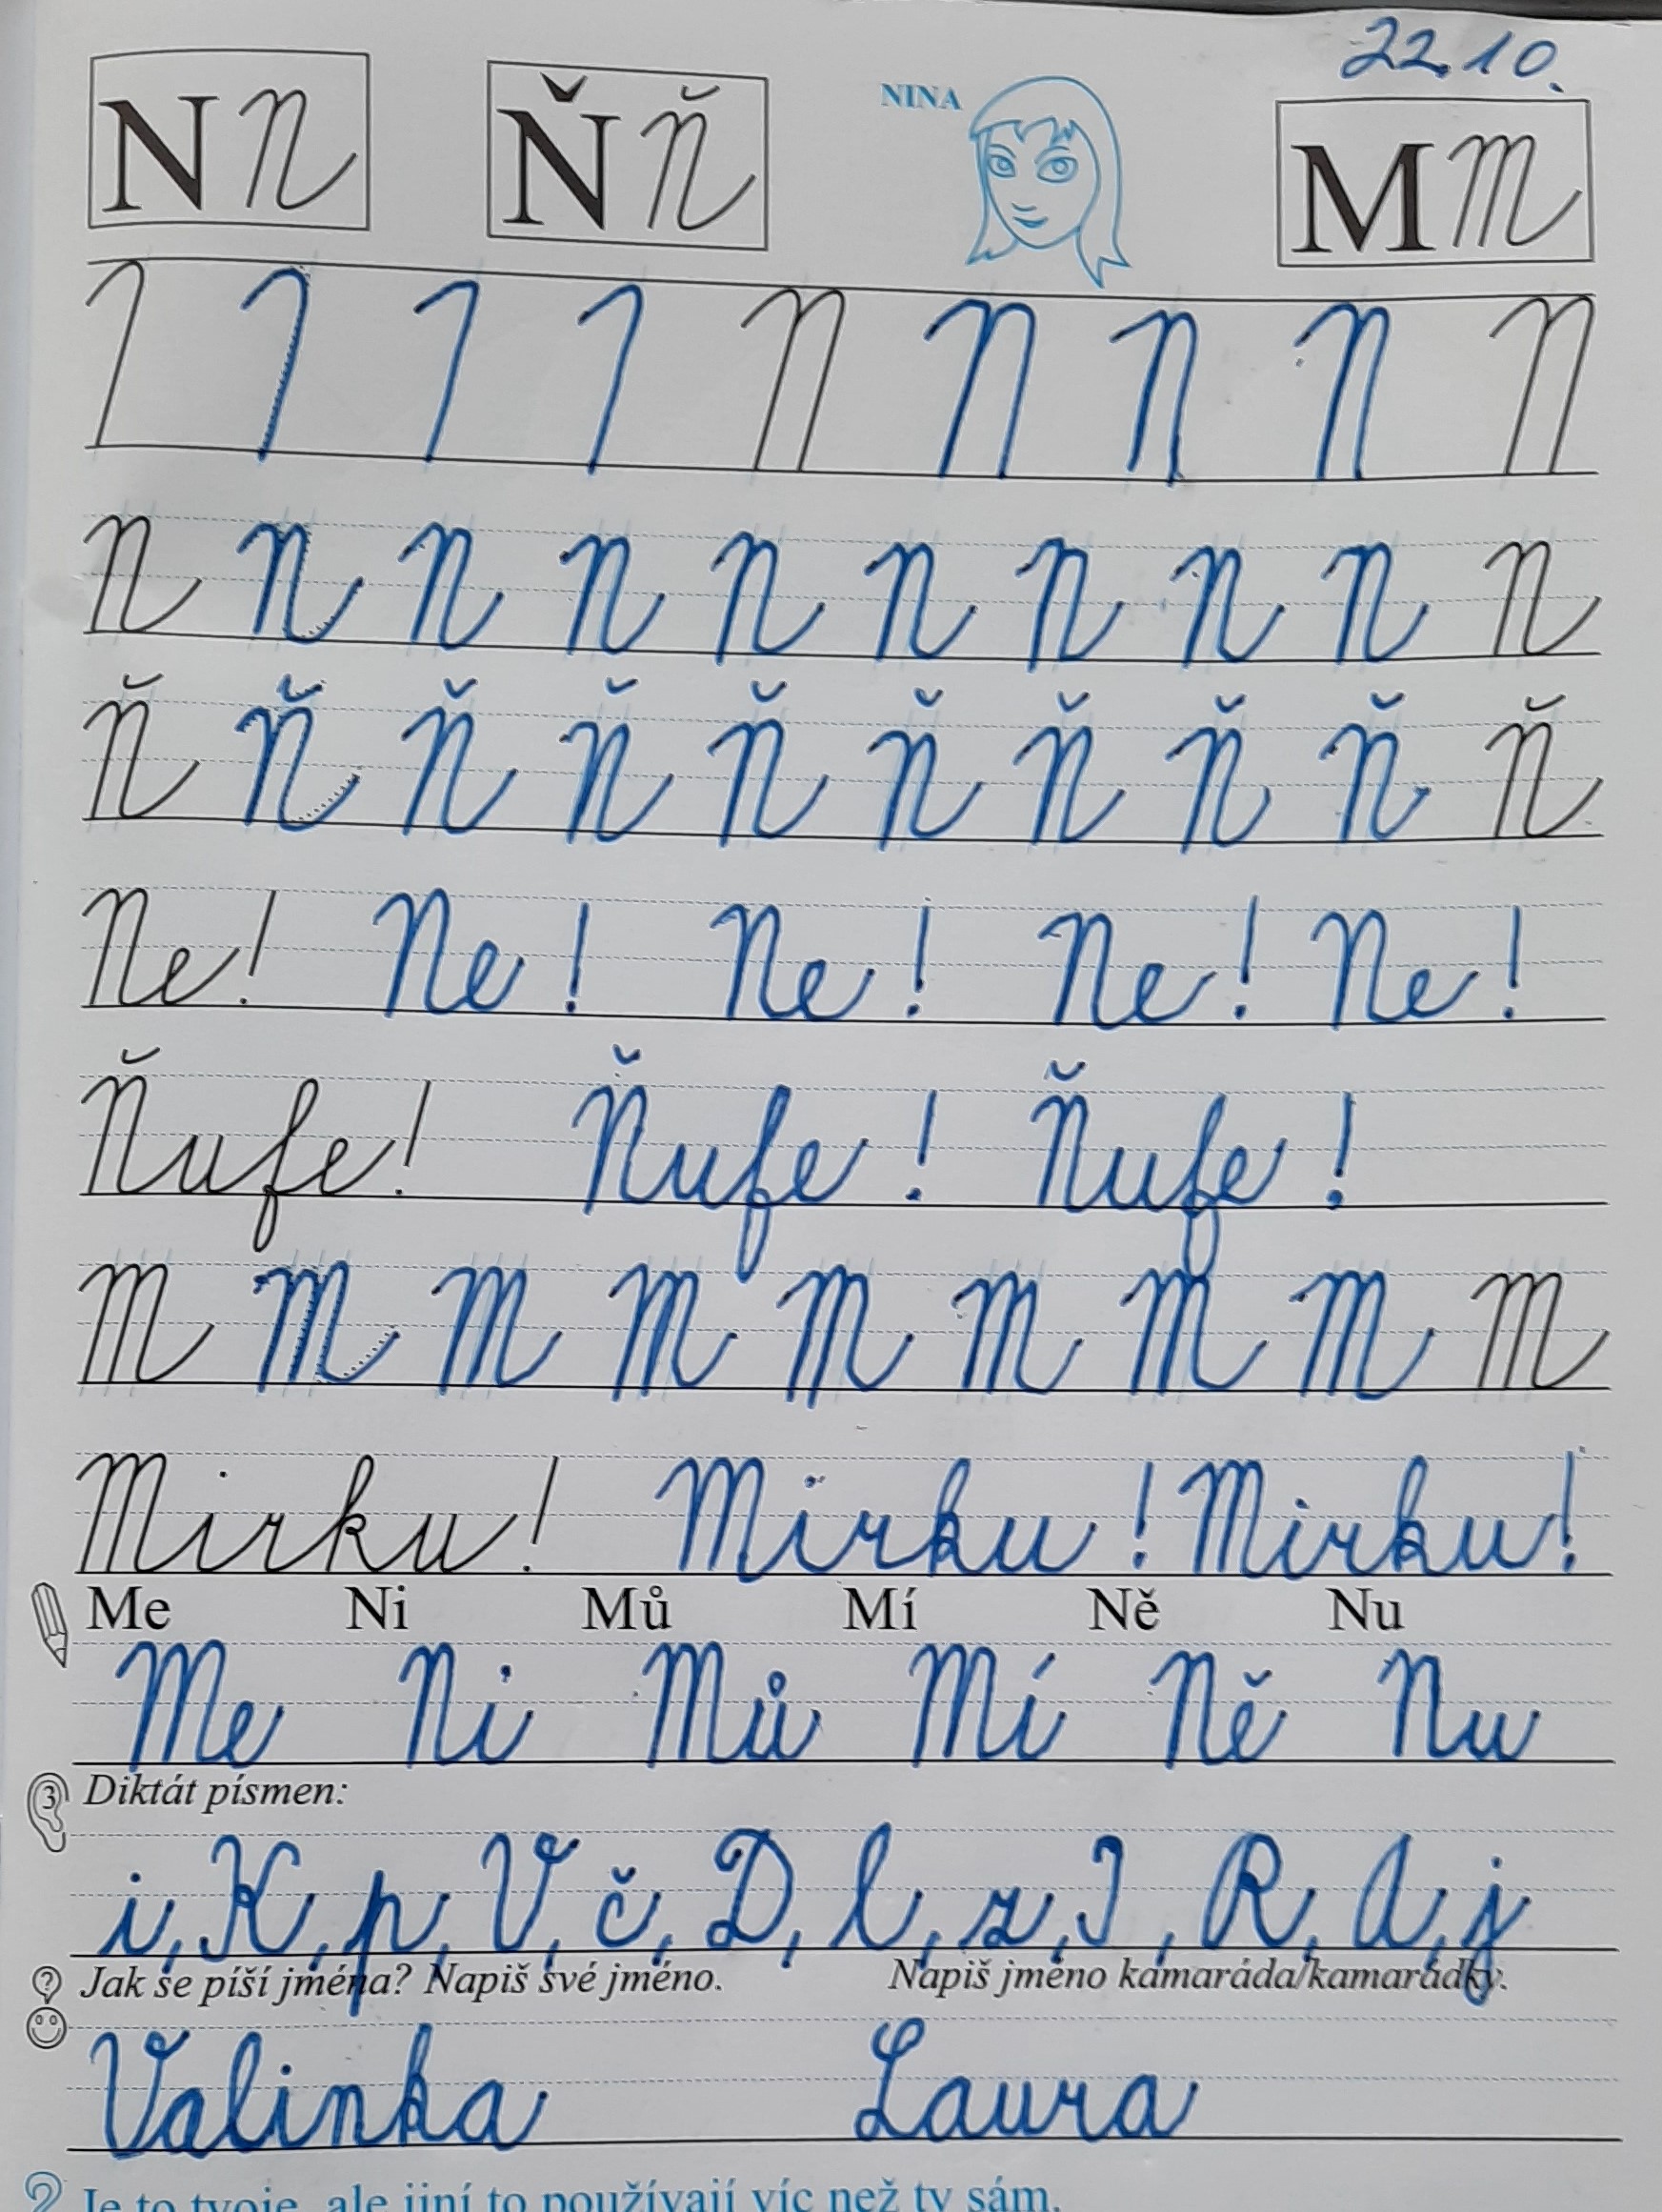 22.10.
N n Ň ň NINA M m
1 1 1 1 N N N N N
N N N N N N N N N N
Ň Ň Ň Ň Ň Ň Ň Ň Ň Ň
Ne! Ne! Ne! Ne! Ne!
Ňufe! Ňufe! Ňufe!
M M M M M M M M M
Mirku! Mirku! Mirku!
Me Ni Mů Mí Ně Nu
Me Ni Mů Mí Ně Nu
3 Diktát písmen:
i, K, p, V, č, D, l, z, I, R, A, j
? Jak se píší jména? Napiš své jméno. Napiš jméno kamaráda/kamarádky.
Valinka Laura
? Je to tvoje, ale jiní to používají víc než ty sám.